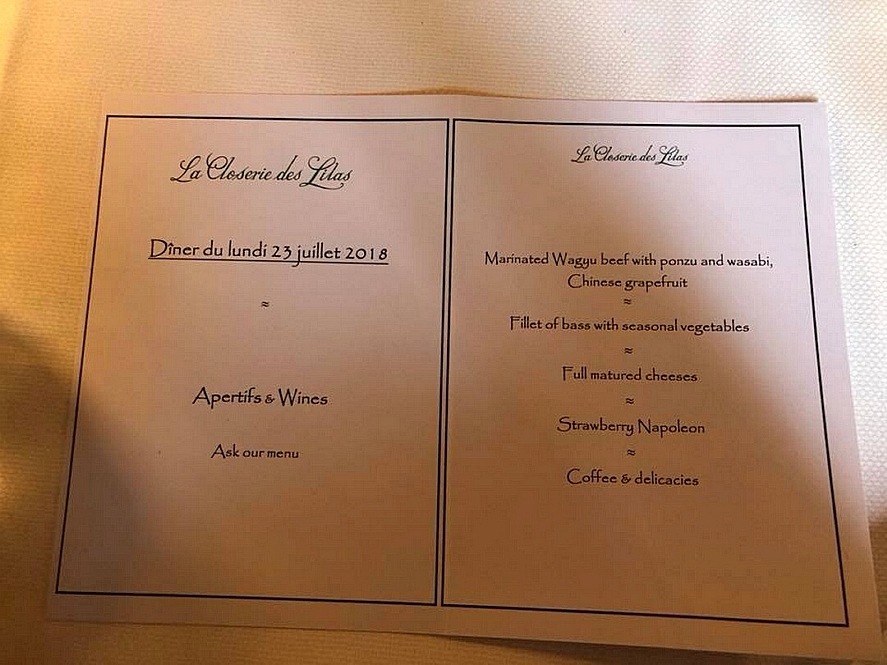 La Closerie des Lilas
Dîner du lundi 23 juillet 2018
≈
Apertifs & Wines
Ask our menu
La Closerie des Lilas
Marinated Wagyu beef with ponzu and wasabi,
Chinese grapefruit
≈
Fillet of bass with seasonal vegetables
≈
Full matured cheeses
≈
Strawberry Napoleon
≈
Coffee & delicacies